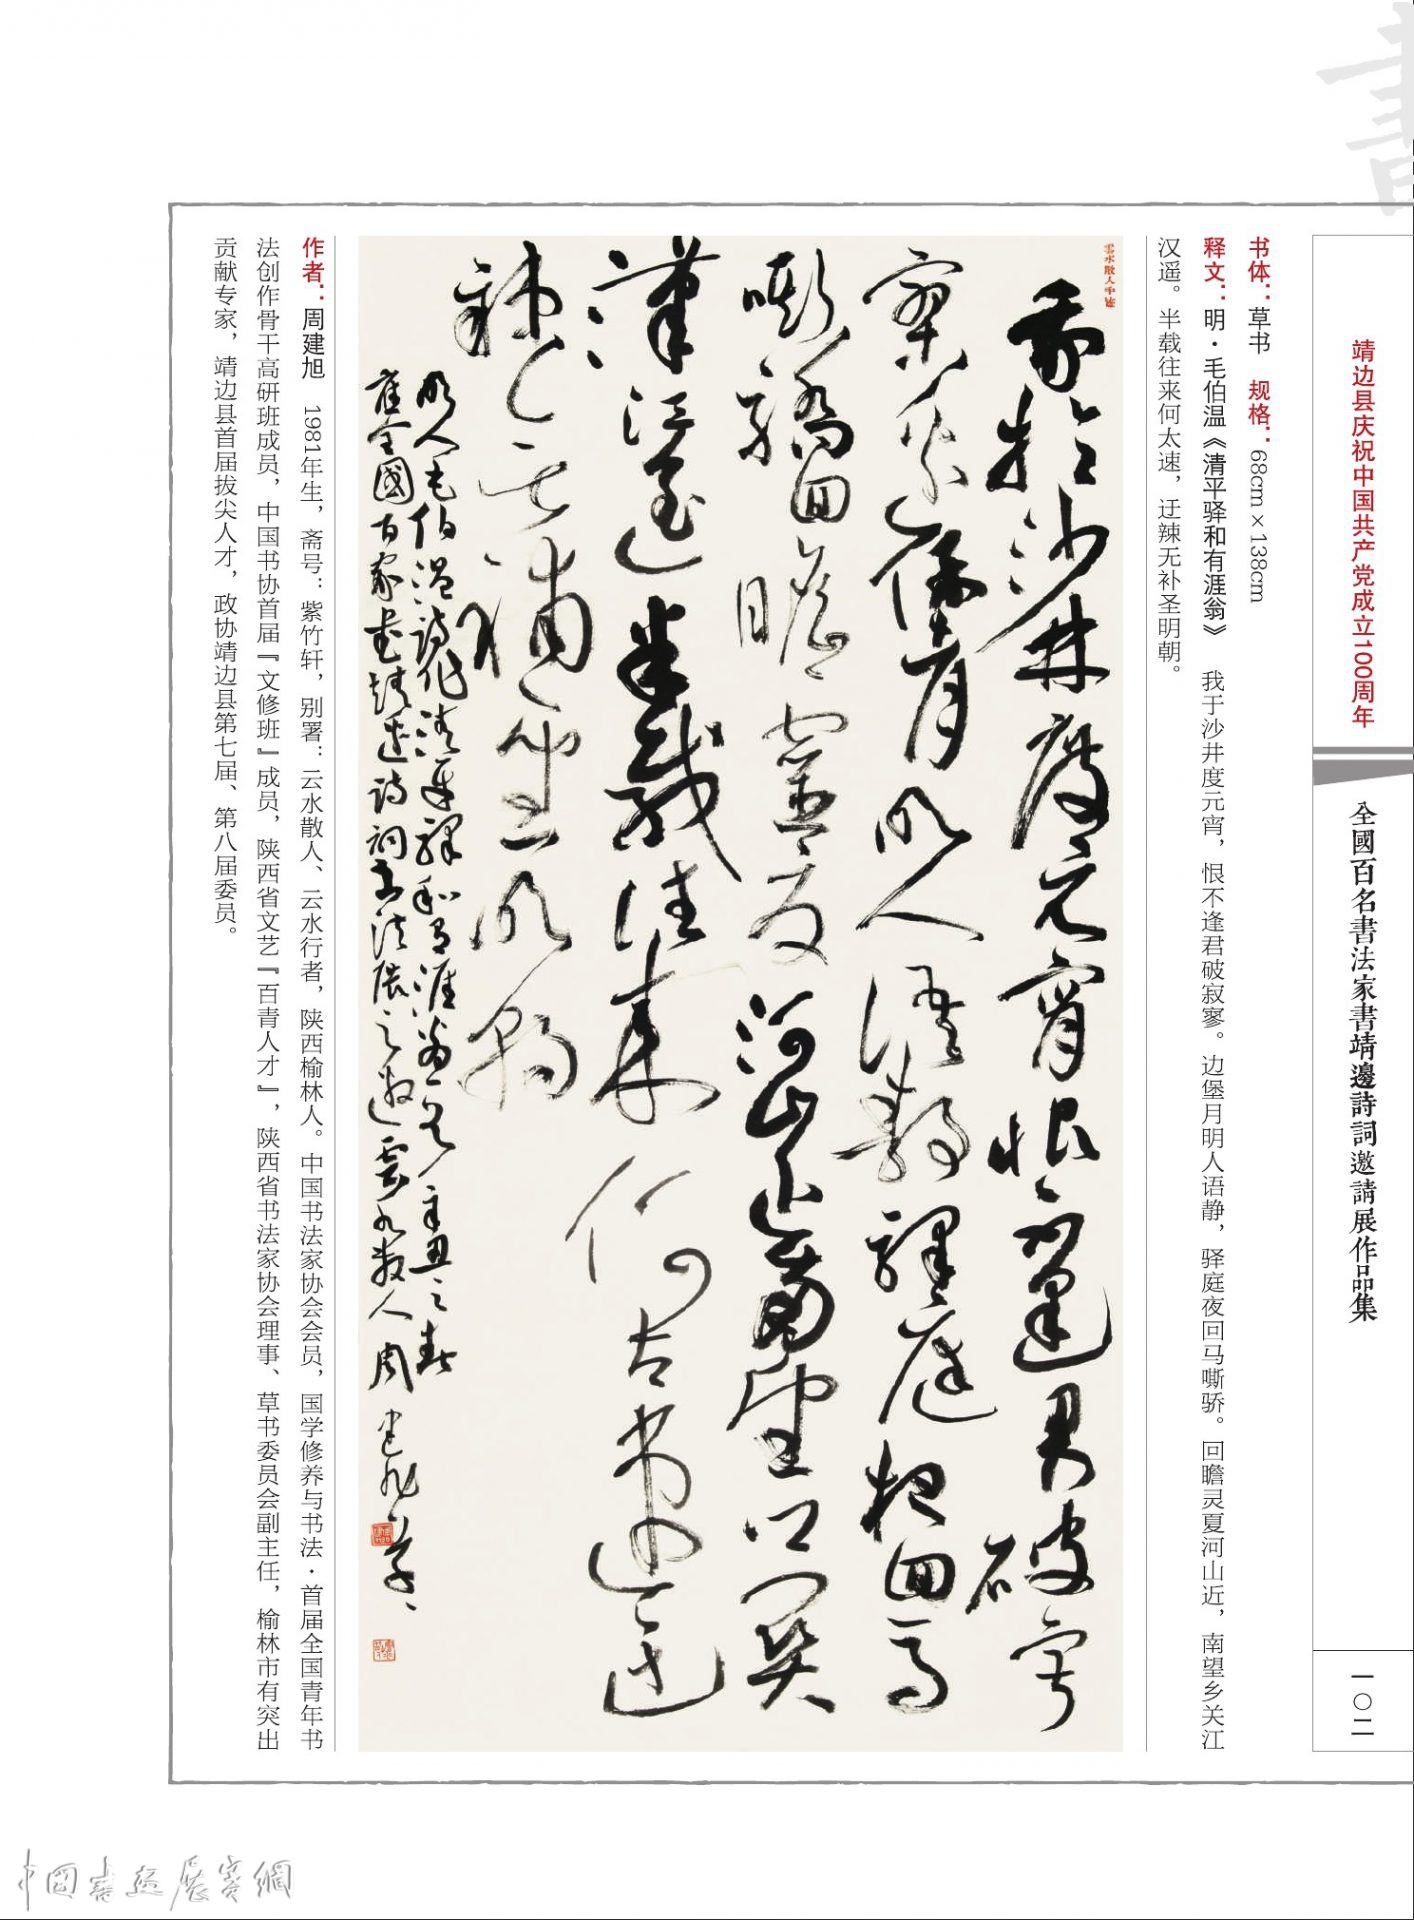 書
靖边县庆祝中国共产党成立100周年
全國百名書法家書靖邊詩詞邀請展作品集
一〇二
书体：草书　规格：68cm×138cm
释文：明·毛伯温《清平驿和有涯翁》　我于沙井度元宵，恨不逢君破寂寥。边堡月明人语静，驿庭夜回马嘶骄。回瞻灵夏河山近，南望乡关江
汉遥。半载往来何太速，迂辣无补圣明朝。
我於沙井度元宵恨不逢君破寂
寥邊堡月明人語靜驛庭夜回馬
嘶驕回瞻靈夏河山近南望鄉關
漢江遙半載往來何太速迂
辣無補聖明朝
明人毛伯温詩作清平驛和有涯翁辛丑之春
應全國百家書靖边詩詞書法展之邀雲水散人周建旭草
作者：周建旭　1981年生，斋号：紫竹轩，别署：云水散人、云水行者，陕西榆林人。中国书法家协会会员，国学修养与书法·首届全国青年书
法创作骨干高研班成员，中国书协首届『文修班』成员，陕西省文艺『百青人才』，陕西省书法家协会理事、草书委员会副主任，榆林市有突出
贡献专家，靖边县首届拔尖人才，政协靖边县第七届、第八届委员。
中國書畫展賽網